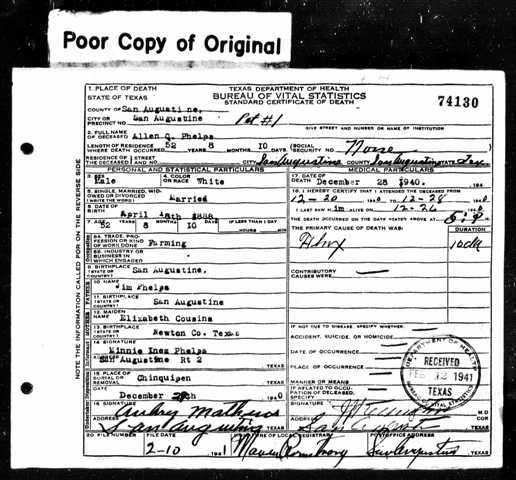 Poor Copy of Original
1. PLACE OF DEATH
STATE OF TEXAS
TEXAS DEPARTMENT OF HEALTH
BUREAU OF VITAL STATISTICS
STANDARD CERTIFICATE OF DEATH
74130
COUNTY OF San Augustine,
CITY OR PRECINCT NO. San Augustine Pct #1
GIVE STREET AND NUMBER OR NAME OF INSTITUTION
2. FULL NAME OF DECEASED Allen Q. Phelps
LENGTH OF RESIDENCE WHERE DEATH OCCURRED 52 8 10 DAYS SOCIAL SECURITY NO. None
RESIDENCE OF THE DECEASED CITY San Augustine COUNTY San Augustine STATE Tex
PERSONAL AND STATISTICAL PARTICULARS
MEDICAL PARTICULARS
3. SEX Male 4. COLOR OR RACE White
17. DATE OF DEATH December 28 1940.
5. SINGLE, MARRIED, WIDOWED OR DIVORCED Married
18. I HEREBY CERTIFY THAT I ATTENDED THE DECEASED FROM
12-20 1940 TO 12-28 1940
6. DATE OF BIRTH April 18th 1888
I LAST SAW him ALIVE ON 12-26
7. AGE 52 8 10 IF LESS THAN 1 DAY
THE DEATH OCCURRED ON THE DATE STATED ABOVE AT
THE PRIMARY CAUSE OF DEATH WAS:
DURATION
8A. TRADE, PROFESSION OR KIND OF WORK DONE Farming
8B. INDUSTRY OR BUSINESS IN WHICH ENGAGED
9. BIRTHPLACE (STATE OR COUNTY) San Augustine,
CONTRIBUTORY CAUSES WERE:
10. NAME Jim Phelps
11. BIRTHPLACE (STATE OR COUNTY) San Augustine
12. MAIDEN NAME Elizabeth Cousins
IF NOT DUE TO DISEASE, SPECIFY WHETHER:
13. BIRTHPLACE (STATE OR COUNTY) Newton Co. Texas
ACCIDENT, SUICIDE, OR HOMICIDE
14. SIGNATURE Minnie Inez Phelps
DATE OF OCCURRENCE
ADDRESS San Augustine Rt 2 TEXAS
PLACE OF OCCURRENCE
15. PLACE OF BURIAL OR REMOVAL Chinquipen TEXAS
MANNER OR MEANS
DATE December 1940
IF RELATED TO OCCUPATION OF DECEASED, SPECIFY
16. SIGNATURE Audry Mathews
SIGNATURE M D
ADDRESS San Augustine TEXAS
ADDRESS
20. FILE NUMBER FILE DATE 2-10 1941
SIGNATURE OF LOCAL REGISTRAR
POST OFFICE ADDRESS San Augustine
DEPARTMENT OF HEALTH
RECEIVED
FEB 12 1941
TEXAS
BUREAU OF VITAL STATISTICS
NOTE THE INFORMATION CALLED FOR ON THE REVERSE SIDE